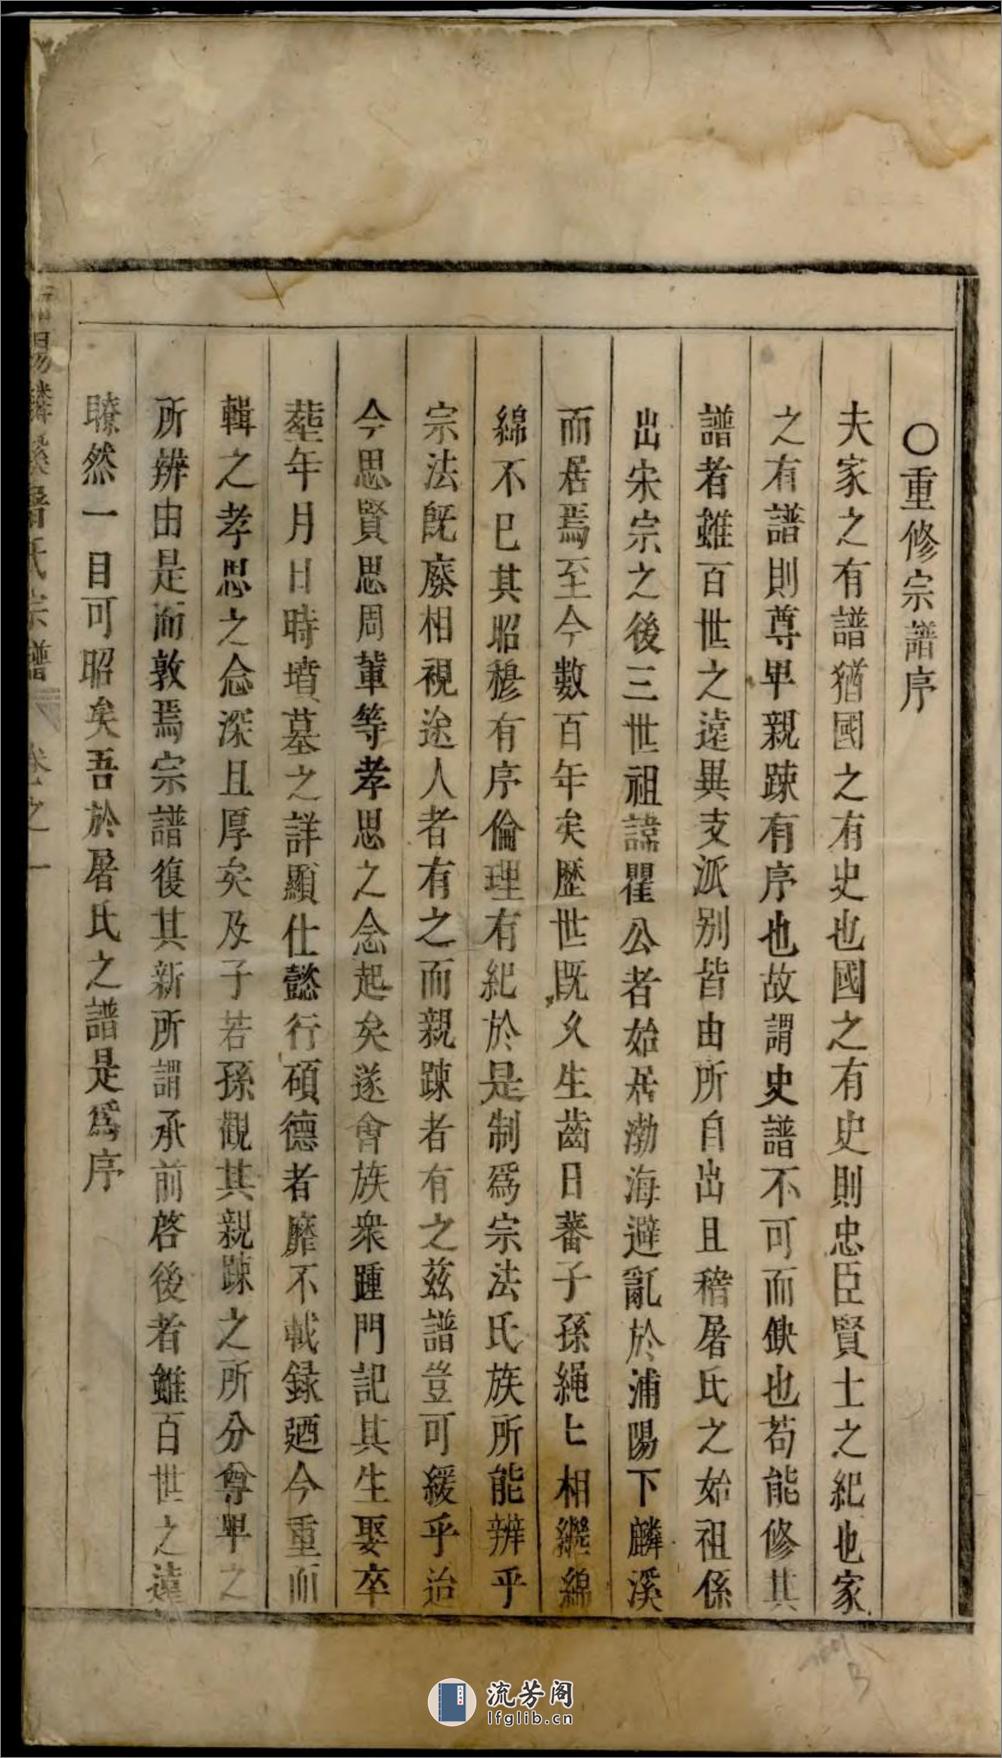 〇重修宗譜序
夫家之有譜猶國之有史也國之有史則忠臣賢士之紀也家
之有譜則尊卑親踈有序也故謂史譜不可而缺也苟能修其
譜者雖百世之遠異支派别皆由所自出且稽屠氏之始祖係
出宋宗之後三世祖諱瞿公者始居渤海避亂於浦陽下麟溪
而居焉至今數百年矣歷世既久生齒日蕃子孫繩〻相繼綿
綿不已其昭穆有序倫理有紀於是制爲宗法氏族所能辨乎
宗法旣廢相視途人者有之而親踈者有之兹譜豈可緩乎迨
今思賢思周輩等孝思之念起矣遂會族衆踵門記其生娶卒
塟年月日時墳墓之詳顯仕懿行碩德者靡不載録廼今重而
輯之孝思之念深且厚矣及子若孫觀其親踈之所分尊卑之
所辨由是而敦焉宗譜復其新所謂承前啓後者雖百世之遠
瞭然一目可昭矣吾於屠氏之譜是爲序
陽麟溪屠氏宗譜 卷之一
流芳阁
lfglib.cn